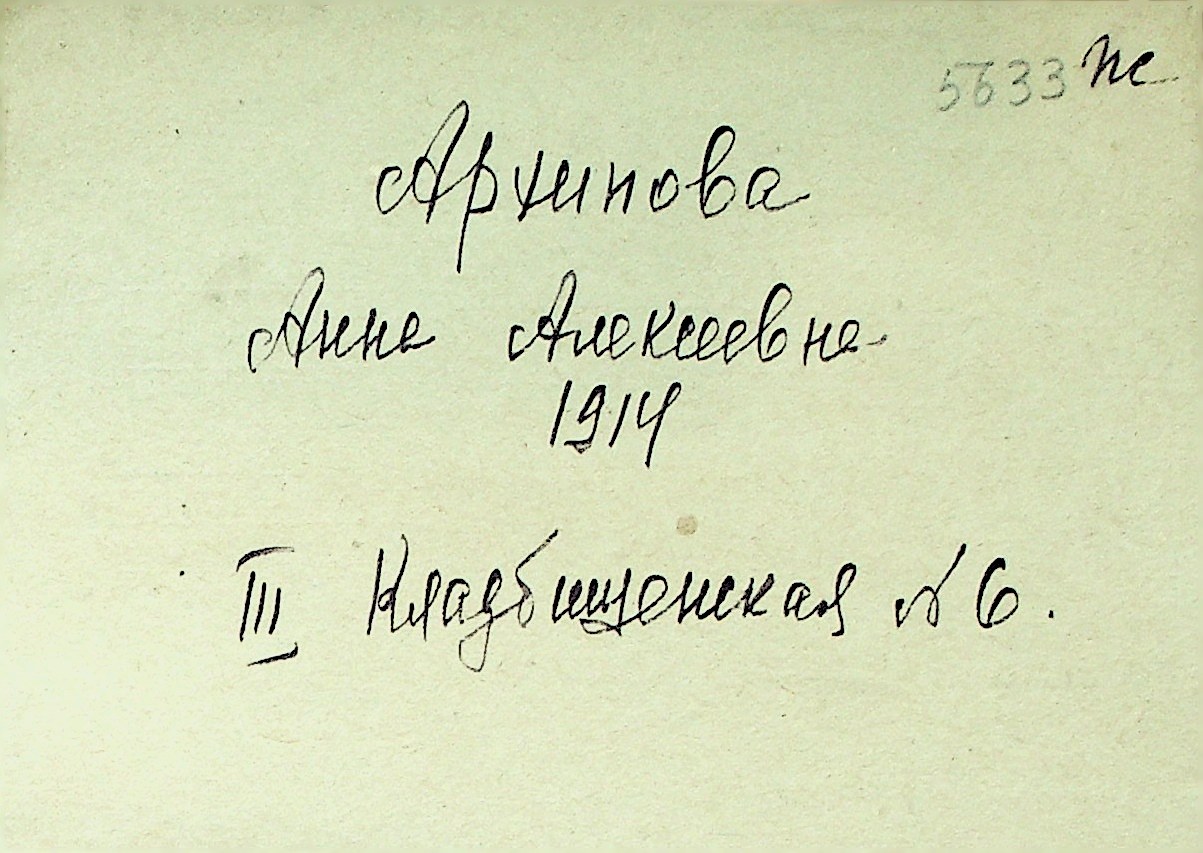 5633 пс
Архипова
Анна Алексеевна
1914
III Кладбищенская № 6.